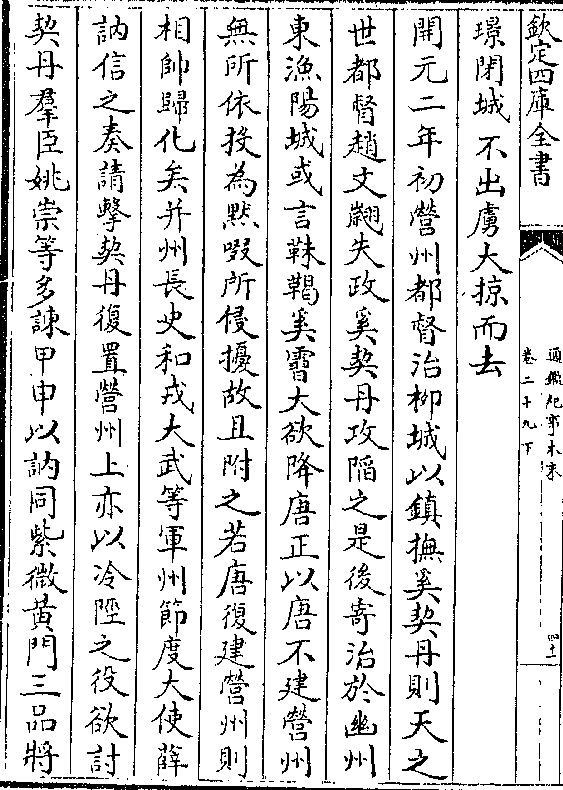 欽定四庫全書
通鑑紀事本末
卷二十九下
四十二
璟閉城不出虜大掠而去
開元二年初營州都督治柳城以鎮撫奚契丹則天之
世都督趙文翽失政奚契丹攻陷之是後寄治於幽州
東漁陽城或言靺鞨奚霫大欲降唐正以唐不建營州
無所依投為黙啜所侵擾故且附之若唐復建營州則
相帥歸化矣并州長史和戎大武等軍州節度大使薛
訥信之奏請擊契丹復置營州上亦以冷陘之役欲討
契丹羣臣姚崇等多諫甲申以訥同紫微黃門三品將